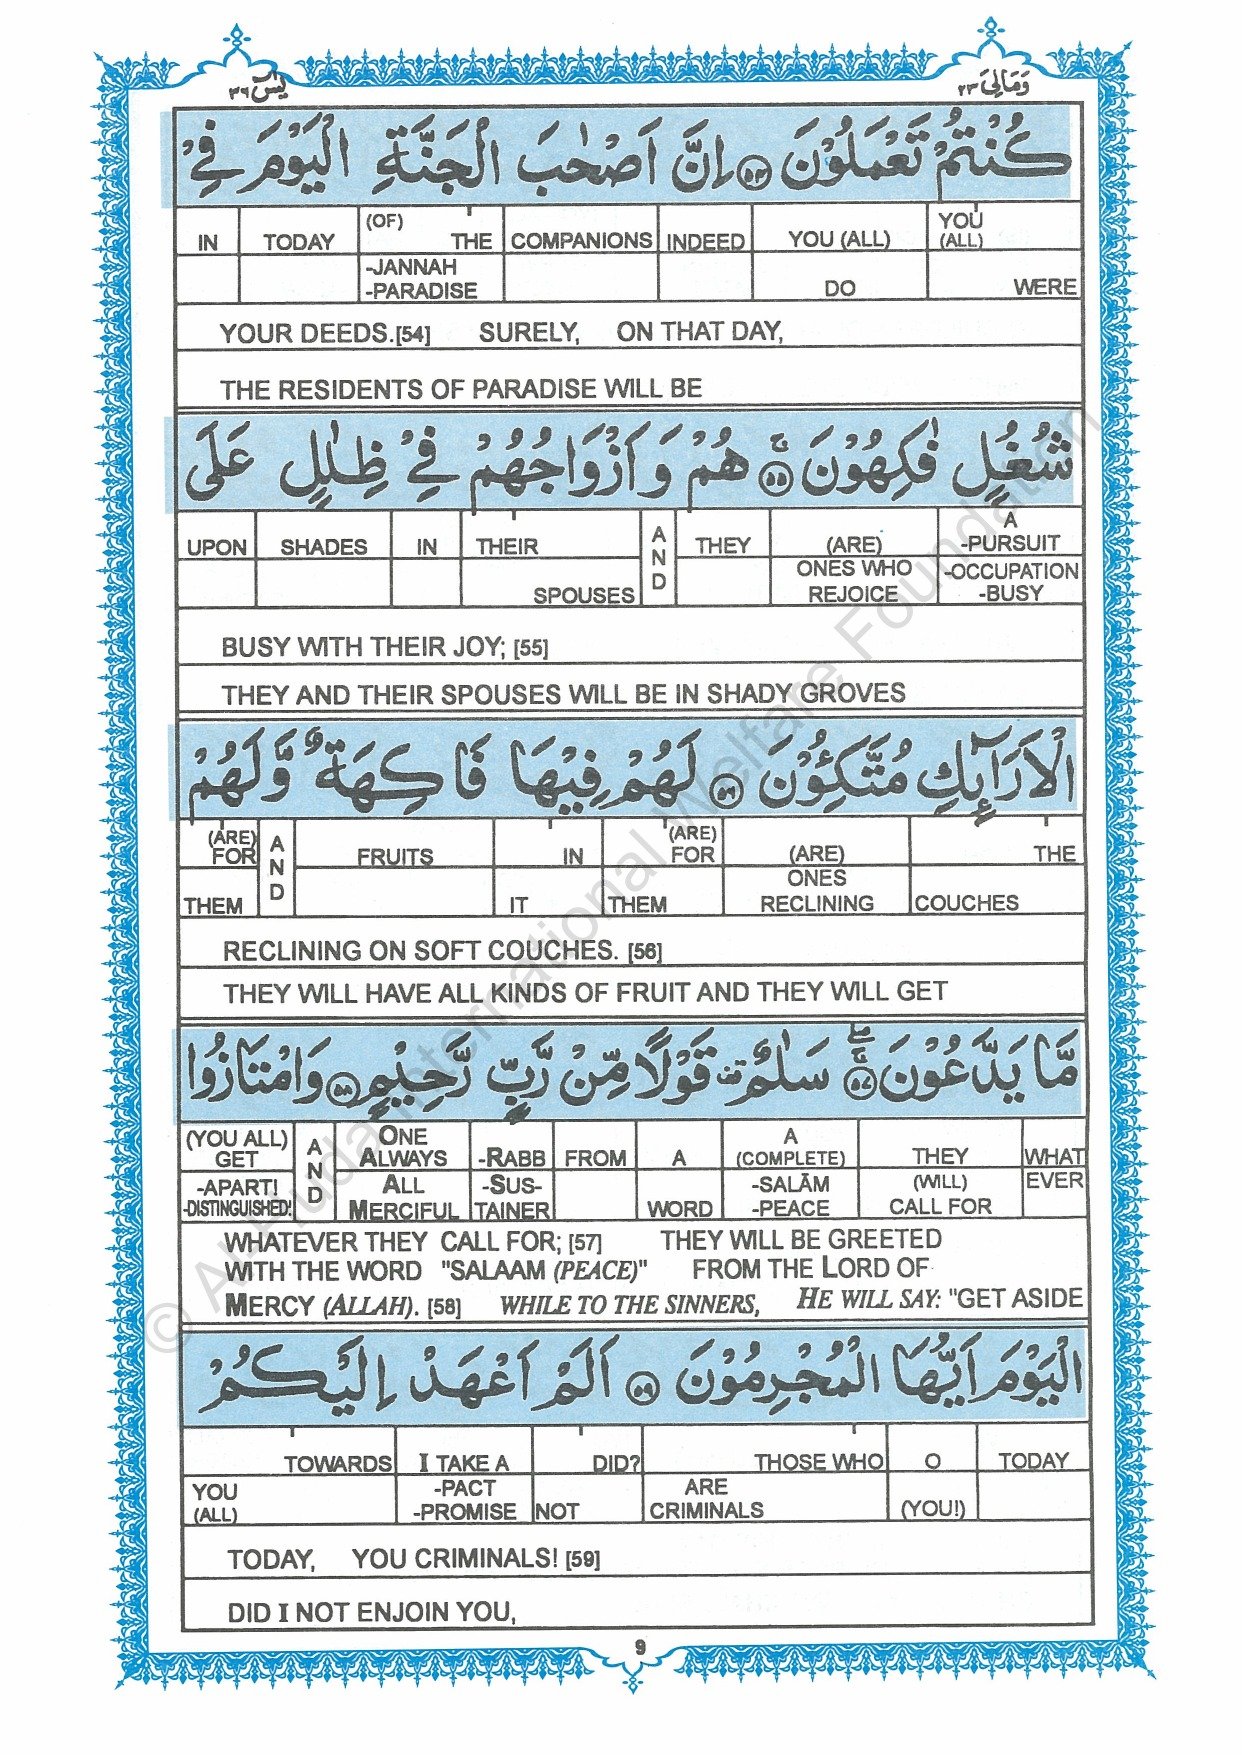 يٰسٓ ٣٦ وَمَالِيَ ٢٣
كُنْتُمْ تَعْمَلُوْنَ ﴿٥٤﴾ اِنَّ اَصْحٰبَ الْجَنَّةِ الْيَوْمَ فِيْ
IN TODAY (OF) THE COMPANIONS INDEED YOU (ALL) YOU (ALL)
-JANNAH -PARADISE DO WERE
YOUR DEEDS.[54] SURELY, ON THAT DAY,
THE RESIDENTS OF PARADISE WILL BE
شُغُلٍ فٰكِهُوْنَ ﴿٥٥﴾ هُمْ وَاَزْوَاجُهُمْ فِيْ ظِلٰلٍ عَلَى
UPON SHADES IN THEIR AND THEY (ARE) A -PURSUIT
SPOUSES ONES WHO REJOICE -OCCUPATION -BUSY
BUSY WITH THEIR JOY; [55]
THEY AND THEIR SPOUSES WILL BE IN SHADY GROVES
الْاَرَآئِكِ مُتَّكِـُٔوْنَ ﴿٥٦﴾ لَهُمْ فِيْهَا فَاكِهَةٌ وَّلَهُمْ
(ARE) FOR AND FRUITS IN (ARE) FOR (ARE) THE
THEM IT THEM ONES RECLINING COUCHES
RECLINING ON SOFT COUCHES. [56]
THEY WILL HAVE ALL KINDS OF FRUIT AND THEY WILL GET
مَّا يَدَّعُوْنَ ﴿٥٧﴾ سَلٰمٌ قَوْلًا مِّنْ رَّبٍّ رَّحِيْمٍ ﴿٥٨﴾ وَامْتَازُوا
(YOU ALL) GET AND ONE ALWAYS -RABB FROM A A (COMPLETE) THEY WHAT
-APART! -DISTINGUISHED! ALL MERCIFUL -SUS-TAINER WORD -SALĀM -PEACE (WILL) CALL FOR EVER
WHATEVER THEY CALL FOR; [57] THEY WILL BE GREETED
WITH THE WORD "SALAAM (PEACE)" FROM THE LORD OF
MERCY (ALLAH). [58] WHILE TO THE SINNERS, HE WILL SAY: "GET ASIDE
الْيَوْمَ اَيُّهَا الْمُجْرِمُوْنَ ﴿٥٩﴾ اَلَمْ اَعْهَدْ اِلَيْكُمْ
TOWARDS I TAKE A DID? THOSE WHO O TODAY
YOU (ALL) -PACT -PROMISE NOT ARE CRIMINALS (YOU!)
TODAY, YOU CRIMINALS! [59]
DID I NOT ENJOIN YOU,
9
© Al-Huda International Welfare Foundation